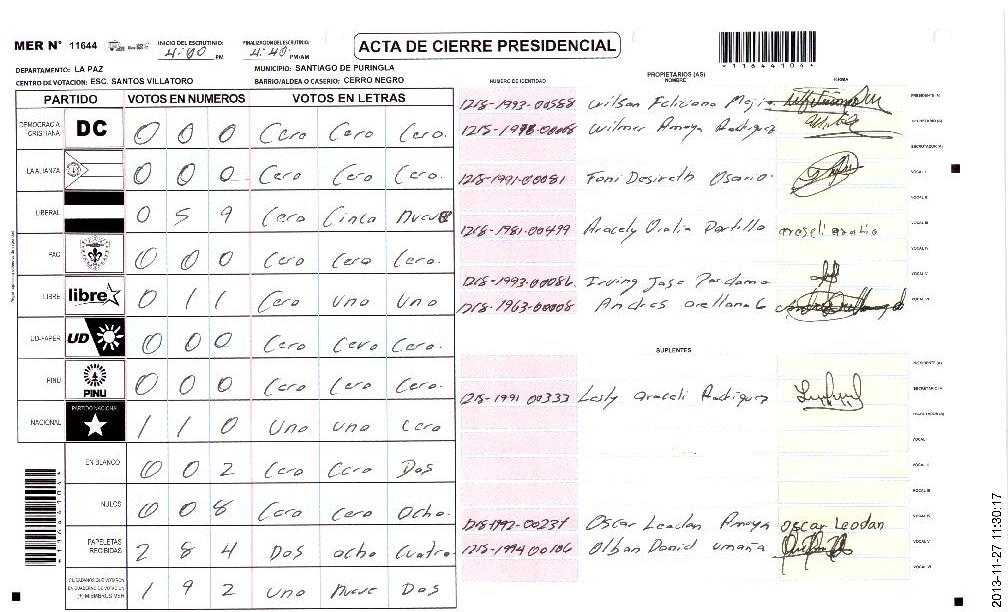 MER N° 11644
INICIO DEL ESCRUTINIO: 4:00 PM
FINALIZACION DEL ESCRUTINIO: 4:40 PM/AM
ACTA DE CIERRE PRESIDENCIAL
*11644104*
DEPARTAMENTO: LA PAZ
MUNICIPIO: SANTIAGO DE PURINGLA
CENTRO DE VOTACION: ESC. SANTOS VILLATORO
BARRIO/ALDEA O CASERIO: CERRO NEGRO
PARTIDO VOTOS EN NUMEROS VOTOS EN LETRAS
DEMOCRACIA CRISTIANA DC 0 0 0 Cero Cero Cero.
LA ALIANZA 0 0 0 Cero Cero Cero.
LIBERAL 0 5 9 Cero Cinco Nueve
PAC 0 0 0 Cero Cero Cero.
LIBRE libre 0 1 1 Cero uno uno
UD-FAPER UD 0 0 0 Cero Cero Cero.
PINU PINU 0 0 0 Cero Cero Cero.
NACIONAL PARTIDO NACIONAL 1 1 0 uno uno Cero
EN BLANCO 0 0 2 Cero Cero Dos
NULOS 0 0 8 Cero Cero Ocho.
PAPELETAS RECIBIDAS 2 8 4 Dos ocho Cuatro
CIUDADANOS QUE VOTARON EN CUADERNO DE VOTACION (+) MIEMBROS MER 1 9 2 uno Nueve Dos
*11644104*
PROPIETARIOS (AS)
NUMERO DE IDENTIDAD NOMBRE FIRMA
1218-1993-00558 Wilson Feliciano Mejia PRESIDENTE (A)
1218-1978-00008 Wilmer Amaya Rodriguez SECRETARIO (A)
ESCRUTADOR (A)
1218-1991-00081 Fani Desireth Osorio. VOCAL I
VOCAL II
1218-1981-00499 Aracely Oralia Portillo VOCAL III
VOCAL IV
1218-1993-00086 Irving Jose Perdomo VOCAL V
1218-1963-00008 Andres Orellana G VOCAL VI
SUPLENTES
PRESIDENTE (A)
1218-1991 00333 Lesly Araceli Rodriguez SECRETARIO (A)
ESCRUTADOR (A)
VOCAL I
VOCAL II
VOCAL III
1218-1992-00237 Oscar Leodan Amaya Oscar Leodan VOCAL IV
1218-1994-00106 Olban Donid umaña VOCAL V
VOCAL VI
2013-11-27 11:30:17